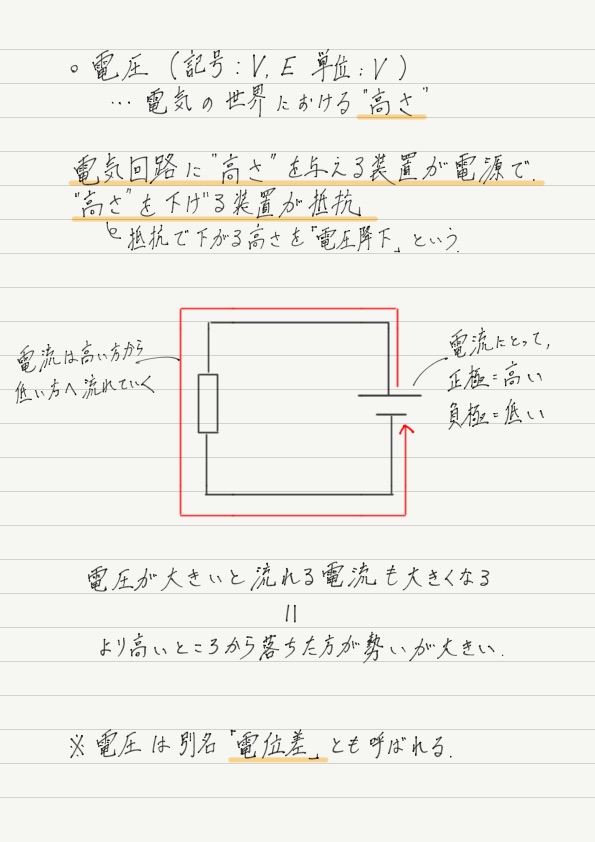 ○ 電圧 (記号:V, E 単位:V)
… 電気の世界における"高さ"
電気回路に"高さ"を与える装置が電源で.
"高さ"を下げる装置が抵抗
抵抗で下がる高さを「電圧降下」という.
電流は高い方から
低い方へ流れていく
電流にとって,
正極=高い
負極=低い
電圧が大きいと流れる電流も大きくなる
=
より高いところから落ちた方が勢いが大きい.
※ 電圧は別名「電位差」とも呼ばれる.